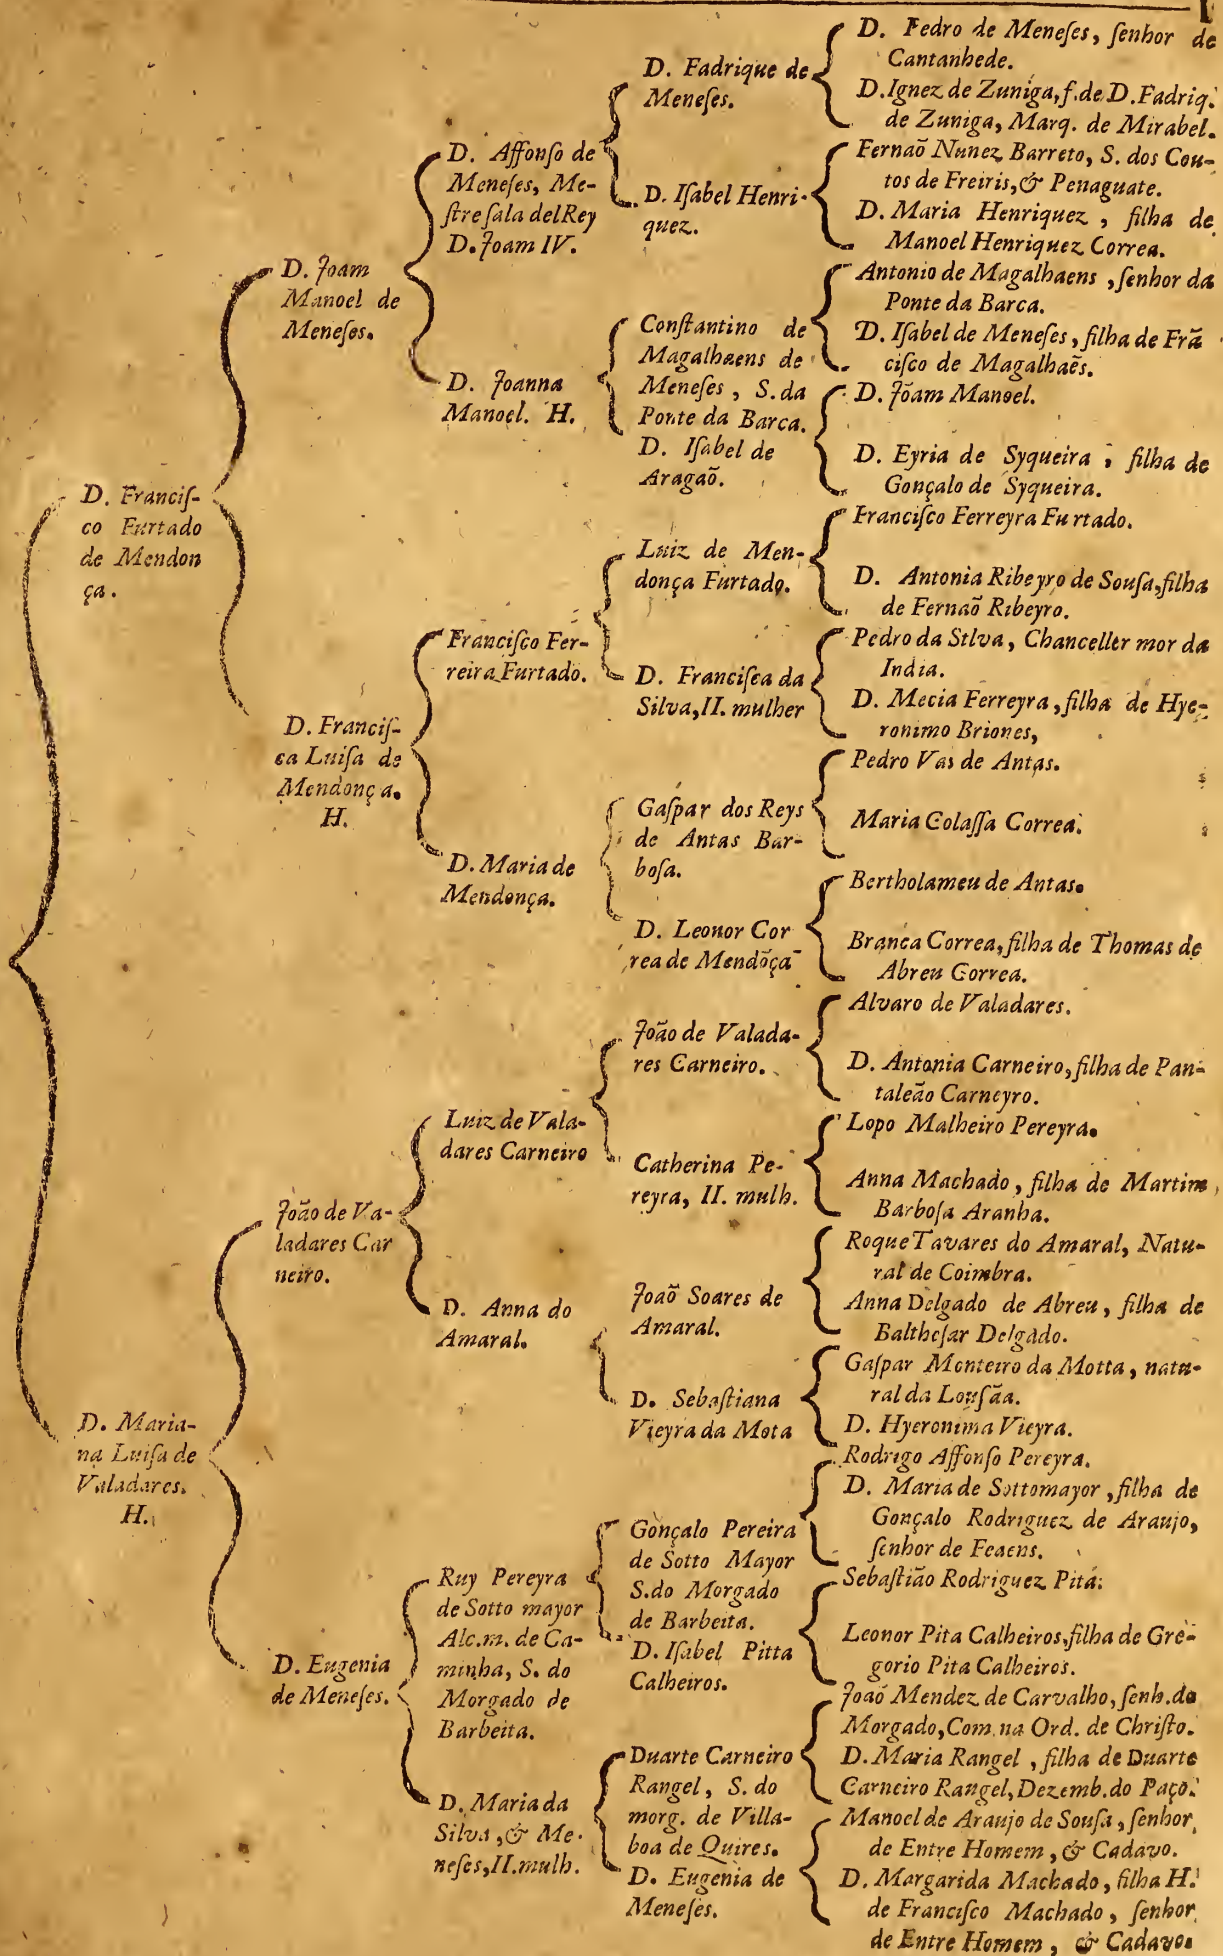 D. Franciſ-
co Furtado
de Mendon
ça.
D. Maria-
na Luiſa de
Valadares.
H.
D. Joam
Manoel de
Meneſes.
D. Franciſ-
ca Luiſa de
Mendonça.
H.
João de Va-
ladares Car
neiro.
D. Eugenia
de Meneſes.
D. Affonſo de
Meneſes, Me-
ſtre ſala delRey
D. Joam IV.
D. Joanna
Manoel. H.
Franciſco Fer-
reira Furtado.
D. Maria de
Mendonça.
Luiz de Vala-
dares Carneiro
D. Anna do
Amaral.
Ruy Pereyra
de Sotto mayor
Alc.m. de Ca-
minha, S. do
Morgado de
Barbeita.
D. Maria da
Silva, & Me-
neſes, II.mulh.
D. Fadrique de
Meneſes.
D. Iſabel Henri-
quez.
Conſtantino de
Magalhaens de
Meneſes, S. da
Ponte da Barca.
D. Iſabel de
Aragaõ.
Luiz de Men-
donça Furtado.
D. Franciſca da
Silva, II. mulher
Gaſpar dos Reys
de Antas Bar-
boſa.
D. Leonor Cor
rea de Mendõça
João de Valada-
res Carneiro.
Catherina Pe-
reyra, II. mulh.
Joaõ Soares de
Amaral.
D. Sebaſtiana
Vieyra da Mota
Gonçalo Pereira
de Sotto Mayor
S.do Morgado
de Barbeita.
D. Iſabel Pitta
Calheiros.
Duarte Carneiro
Rangel, S. do
morg. de Villa-
boa de Quires.
D. Eugenia de
Meneſes.
D. Pedro de Meneſes, ſenhor de
Cantanhede.
D.Ignez de Zuniga, f.de D.Fadriq.
de Zuniga, Marq. de Mirabel.
Fernaõ Nunez Barreto, S. dos Cou-
tos de Freiris, & Penaguate.
D. Maria Henriquez, filha de
Manoel Henriquez Correa.
Antonio de Magalhaens, ſenhor da
Ponte da Barca.
D. Iſabel de Meneſes, filha de Frã
ciſco de Magalhaẽs.
D. Joam Manoel.
D. Eyria de Syqueira, filha de
Gonçalo de Syqueira.
Franciſco Ferreyra Furtado.
D. Antonia Ribeyro de Souſa, filha
de Fernaõ Ribeyro.
Pedro da Silva, Chanceller mor da
India.
D. Mecia Ferreyra, filha de Hye-
ronimo Briones,
Pedro Vas de Antas.
Maria Colaſſa Correa.
Bertholameu de Antas.
Branca Correa, filha de Thomas de
Abreu Correa.
Alvaro de Valadares.
D. Antonia Carneiro, filha de Pan-
taleão Carneyro.
Lopo Malheiro Pereyra.
Anna Machado, filha de Martim
Barboſa Aranha.
Roque Tavares do Amaral, Natu-
ral de Coimbra.
Anna Delgado de Abreu, filha de
Baltheſar Delgado.
Gaſpar Monteiro da Motta, natu-
ral da Louſãa.
D. Hyeronima Vieyra.
Rodrigo Affonſo Pereyra.
D. Maria de Sottomayor, filha de
Gonçalo Rodriguez de Araujo,
ſenhor de Feaens.
Sebaſtião Rodriguez Pitá.
Leonor Pita Calheiros, filha de Gre-
gorio Pita Calheiros.
Joaõ Mendez de Carvalho, ſenh.do
Morgado, Com.na Ord. de Chriſto.
D. Maria Rangel, filha de Duarte
Carneiro Rangel, Dezemb.do Paço.
Manoel de Araujo de Souſa, ſenhor
de Entre Homem, & Cadavo.
D. Margarida Machado, filha H.
de Franciſco Machado, ſenhor
de Entre Homem, & Cadavo.